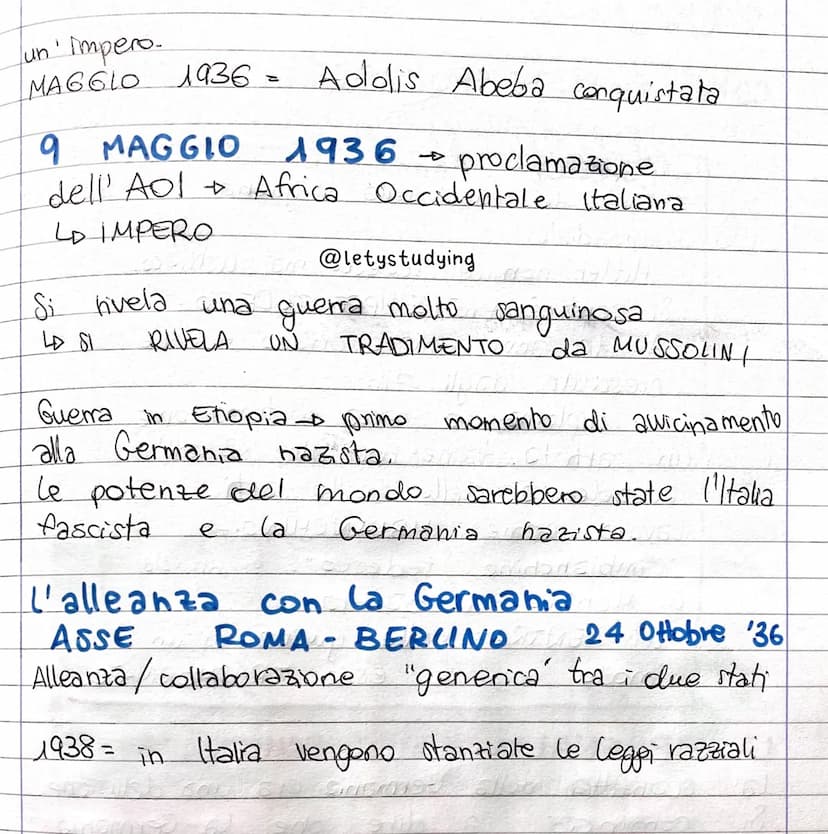 un' impero.
MAGGIO 1936 = Addis Abeba conquistata
9 MAGGIO 1936 → proclamazione
dell' AOI → Africa Occidentale Italiana
↳ IMPERO
@letystudying
Si rivela una guerra molto sanguinosa
↳ SI RIVELA UN TRADIMENTO da MUSSOLINI
Guerra in Etiopia → primo momento di avvicinamento
alla Germania nazista.
le potenze del mondo sarebbero state l'Italia
fascista e la Germania nazista.
L'alleanza con la Germania
ASSE ROMA - BERLINO 24 Ottobre '36
Alleanza / collaborazione "generica" tra i due stati
1938 = in Italia vengono stanziate le leggi razziali